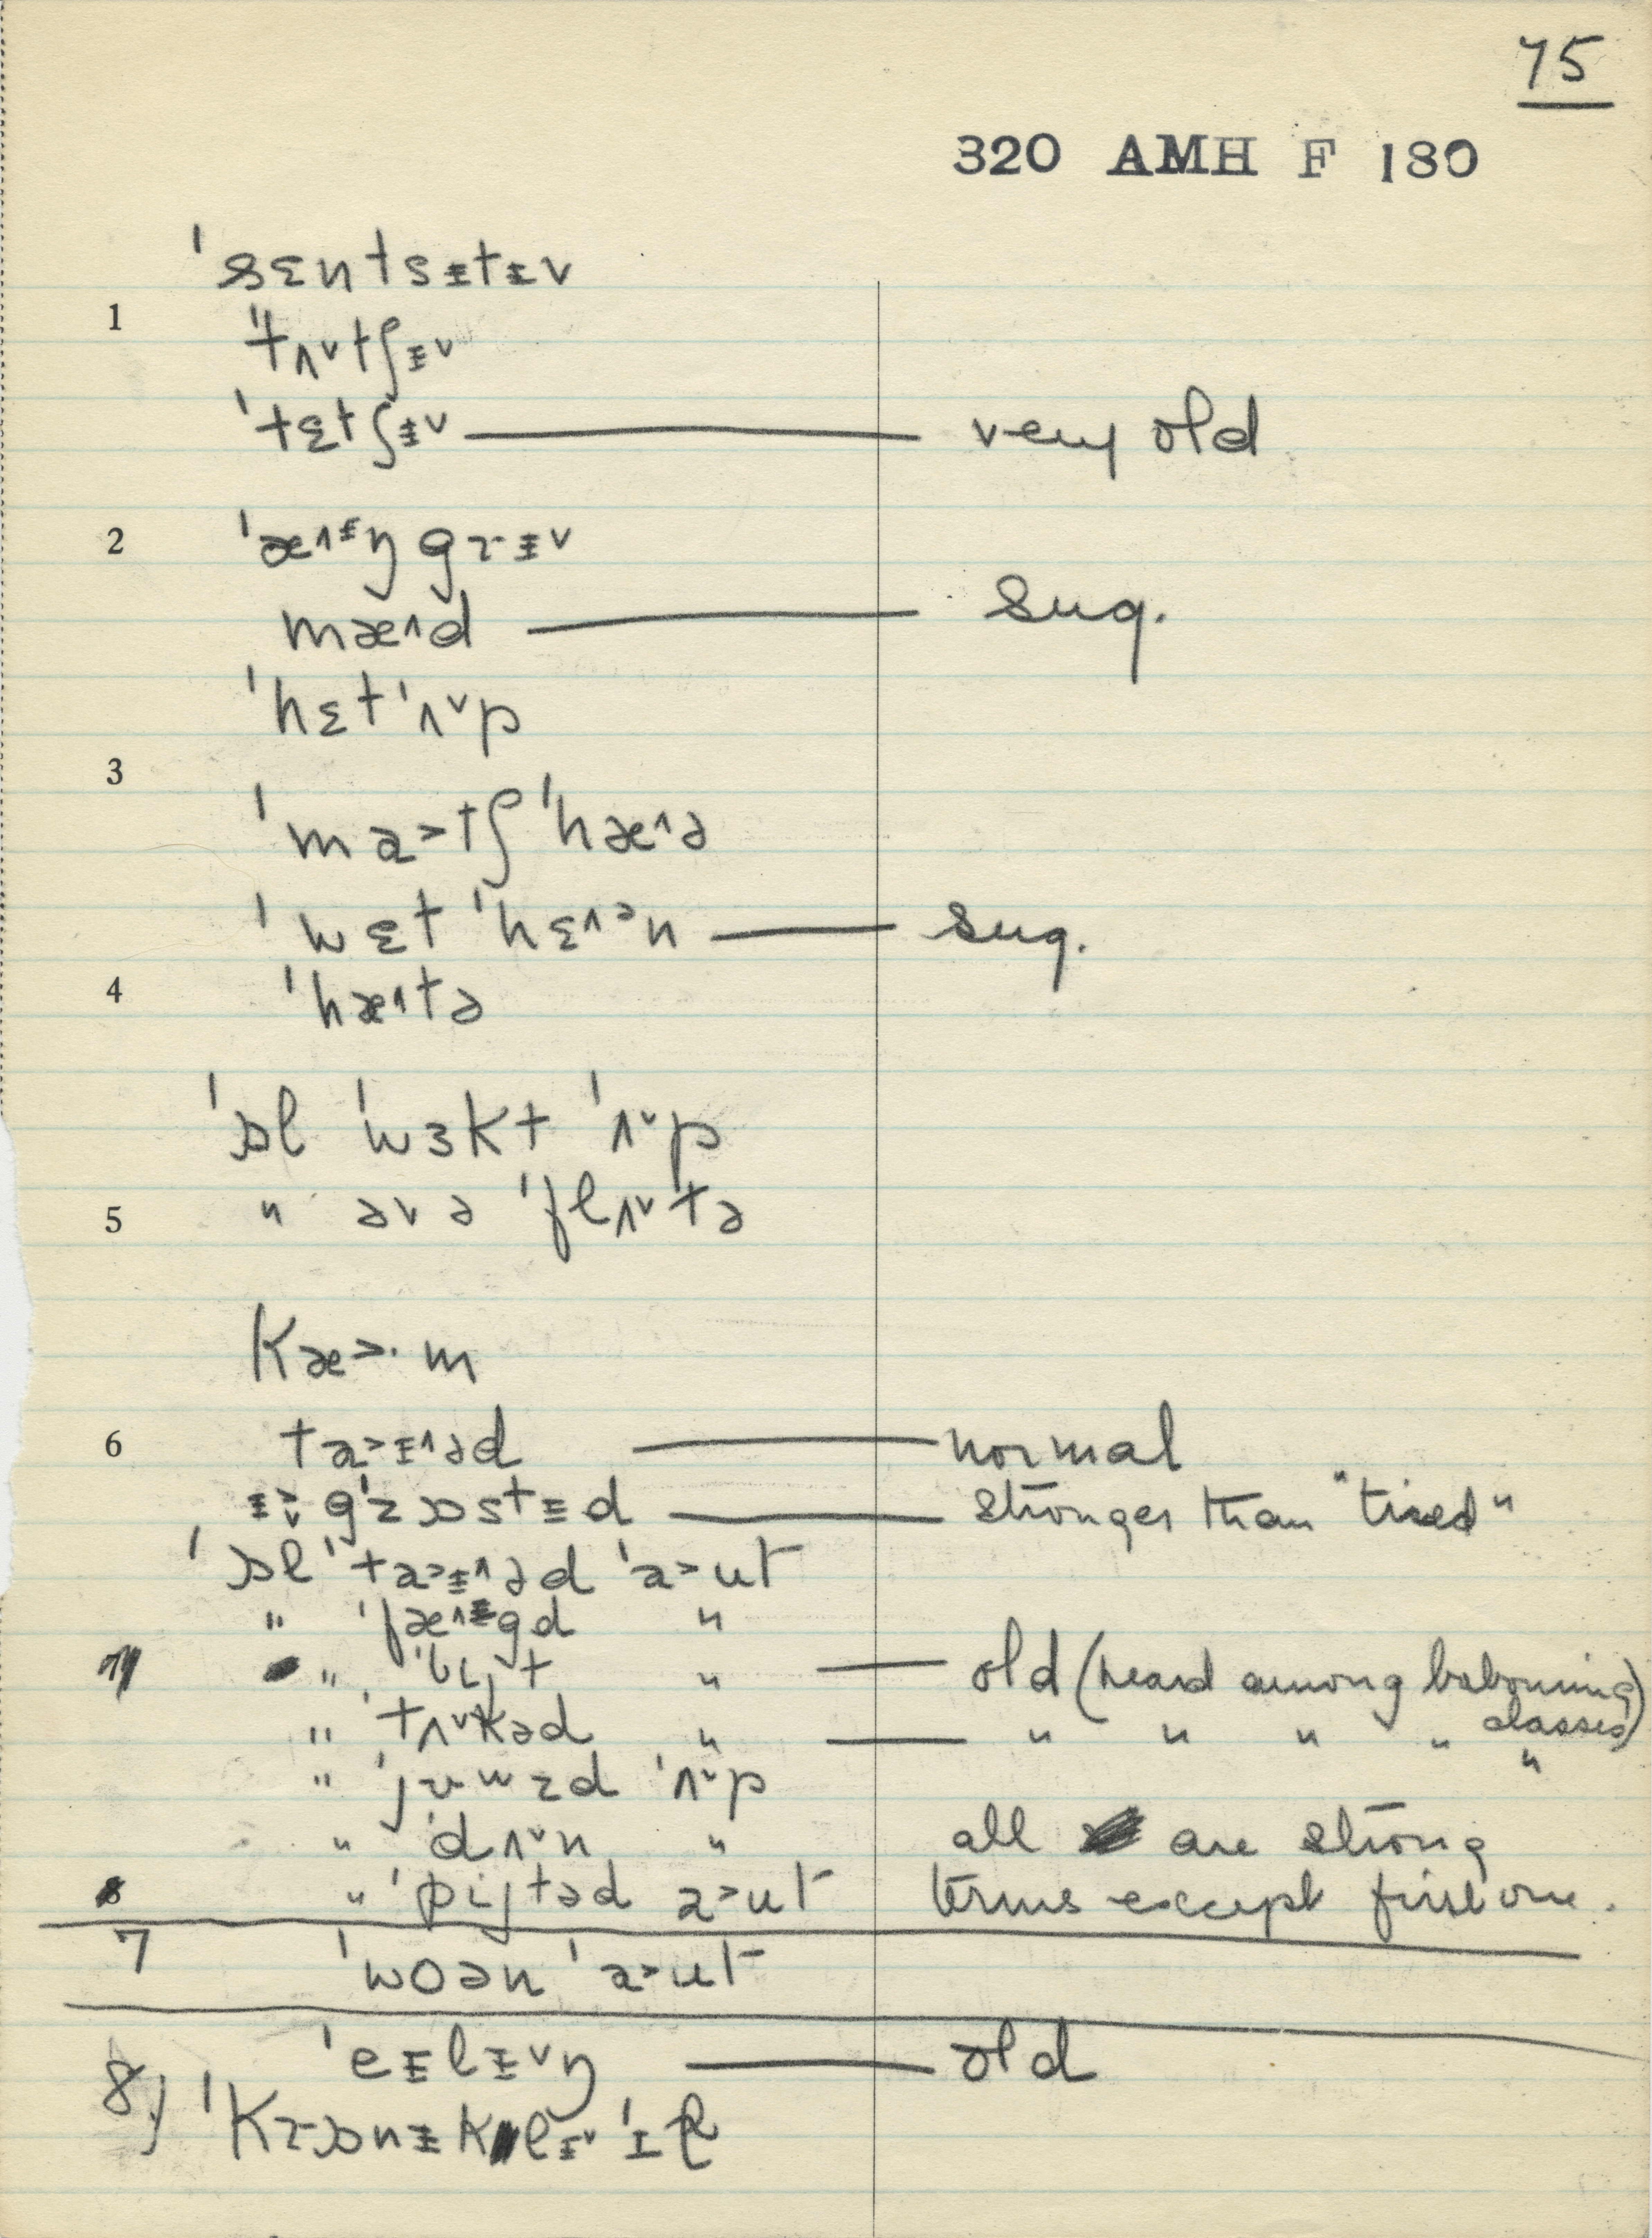 75
320 AMH F 180
ˈsɛntsᵻtᵻ˅
1
ˈtʌ˅tʃᵻ˅
ˈtɛtʃᵻ˅ — very old
2 ˈæ˄ᵻŋgrᵻ˅
mæ˄d — sug.
ˈhɛtˈʌ˅p
3
ˈma˃tʃˈhæ˄ə
ˈwɛtˈhɛ˄ən — sug.
4 ˈhæ˄tə
ˈɔl ˈwɜktˈʌ˅p
5 " əvə ˈflʌ˅tə
Kæ˃·m
6 ta˃ᵻ˄əd — normal
gˈzɔstᵻd — stronger than "tired"
ˈɔl ˈta˃ᵻ˄əd ˈa˃ut
" ˈfæ˄ᵻgd "
" t " — old (heard among labouring
classes)
" ˈtʌ˅kəd " — " " " " "
" zd ˈʌ˅p
" ˈdʌ˅n " all are strong
" ˈpijtəd a˃ut terms except first one.
7 ˈwoən ˈa˃ut
ˈeᵻlᵻ˅ŋ — old
8) ˈKrɔnᵻklᵻ˅ ˈɪl